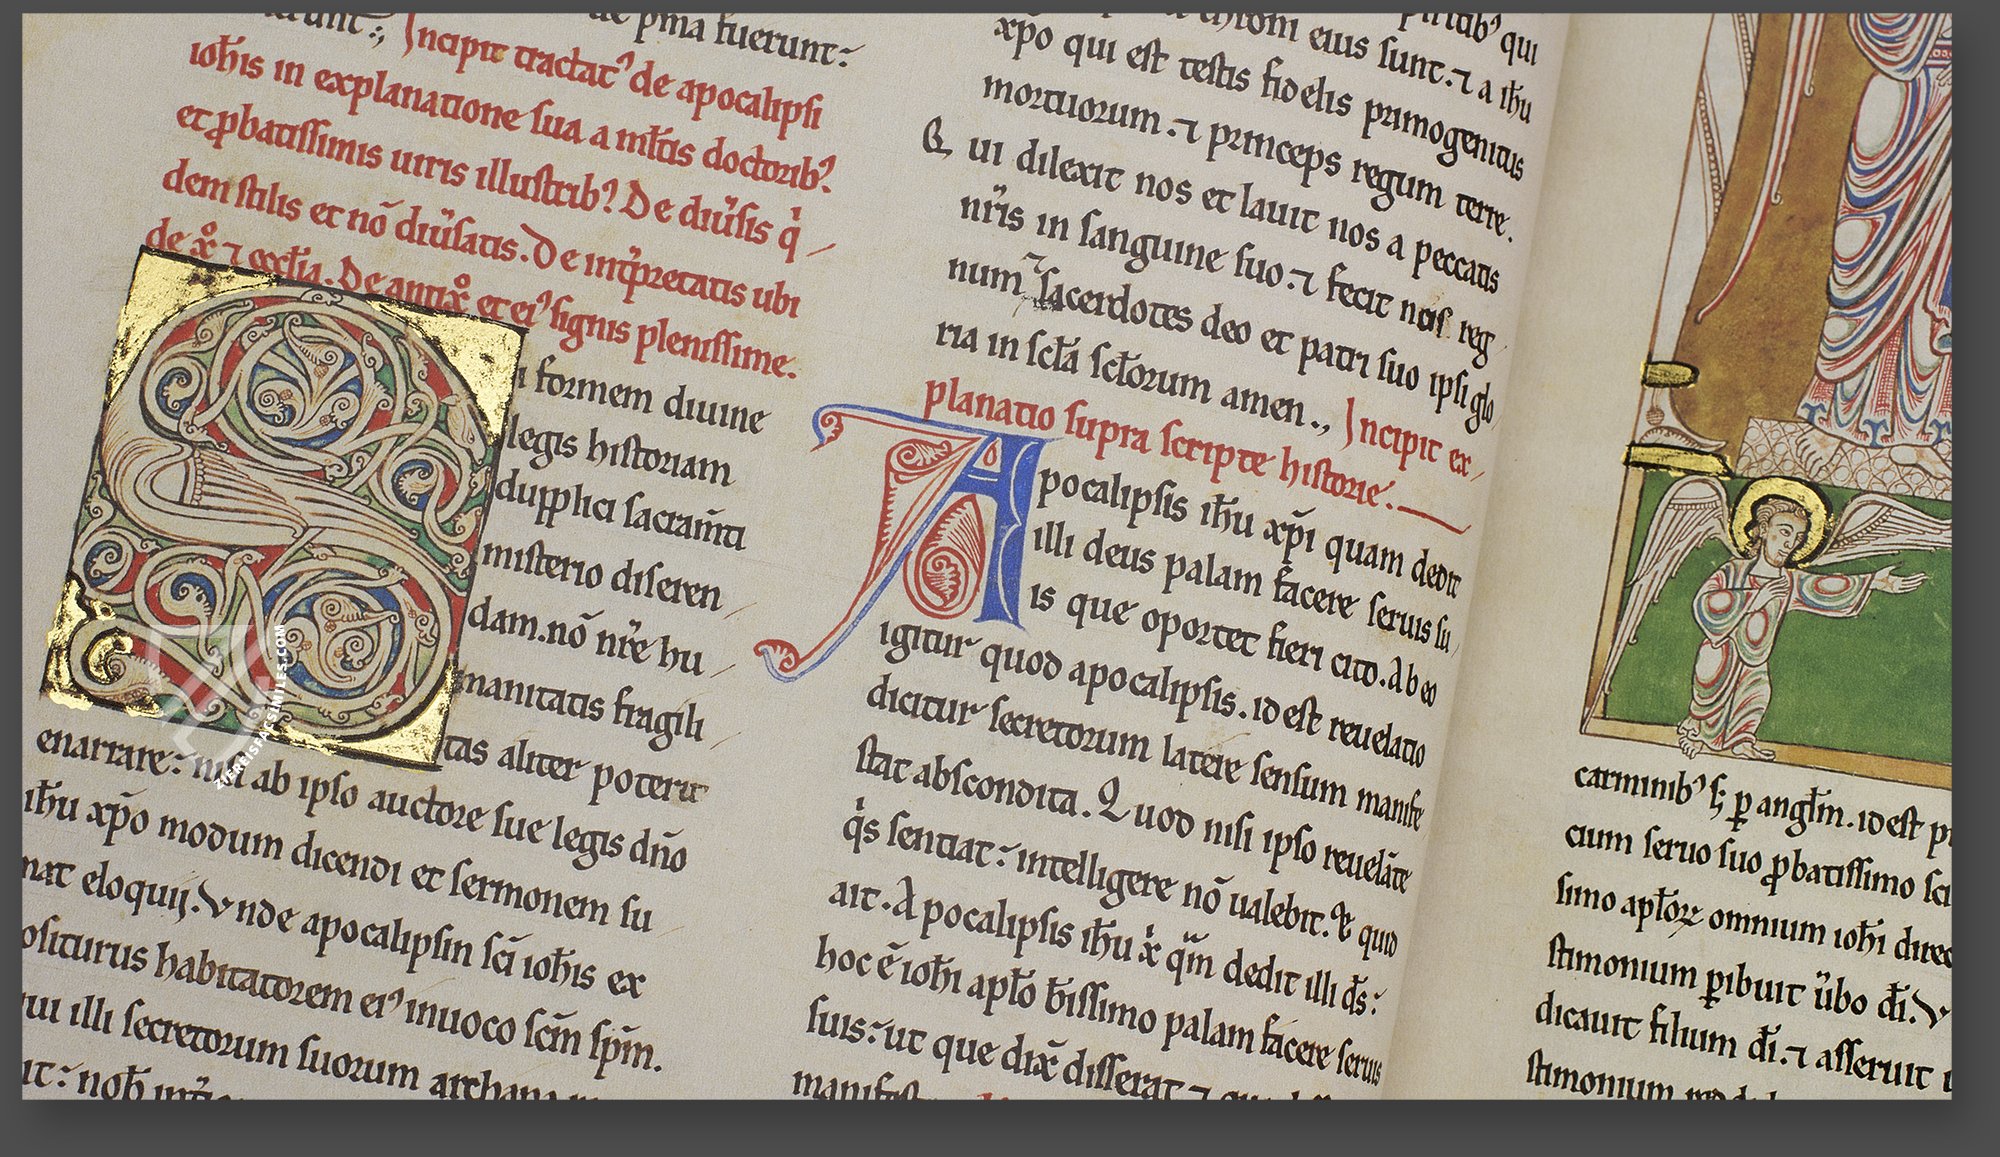 pma fuerunt:
Incipit tractat⁹ de apocalipsi
ioh̄is in explanatione sua a ml̄tis doctorib⁹.
et ꝓbatissimis uiris illustrib⁹. De diu͛sis q̇
dem stilis et nō diu͛satis. De int͛pretatis ubi
de xo ⁊ eccl̄ia. De antixo et ei⁹ signis plenissime.
i formem diuine
legis historiam
dupplici sacram̄ti
misterio diseren
dam. nō nr̄e hu
manitatis fragili
tas aliter poterit
enarrare: nisi ab ipso auctore sue legis dn̄o
ih̄u xp̄o modum dicendi et sermonem su
mat eloquij. Vnde apocalipsin sc̄i ioh̄is ex
positurus habitatorem ei⁹ inuoco sc̄m sp̄m.
qui illi secretorum suorum archana
it: nob̄
throni eius sunt. ⁊ a ih̄u
xp̄o qui est testis fidelis primogenitus
mortuorum. ⁊ princeps regum terre.
Qui dilexit nos et lauit nos a peccatis
nr̄is in sanguine suo ⁊ fecit nos reg
num ⁊ sacerdotes deo et patri suo ipsi glo
ria in scl̄a scl̄orum amen., Incipit ex
planatio supra scripte historie.
Apocalipsis ih̄u xp̄i quam dedit
illi deus palam facere seruis su
is que oportet fieri cito. Ab eo
igitur quod apocalipsis. id est reuelatio
dicitur secretorum latere sensum manife
stat abscondita. Quod nisi ipso reuelāte
q̇s sentiat: intelligere nō ualebit. Et quid
ait. Apocalipsis ih̄u x̄i q̄m dedit illi d̄s:
hoc ē ioh̄i apl̄o b̄issimo palam facere seruis
suis: ut que dix̄ disserat ⁊
carminib⁹ s; ꝑ angl̄m. id est
cium seruo suo ꝓbatissimo sci
simo apl̄oꝝ omnium ioh̄i direc
stimonium ꝑibuit u͛bo dī. V
dicauit filium dī. ⁊ asseruit
stimonium
ZIEREISFACSIMILES.COM